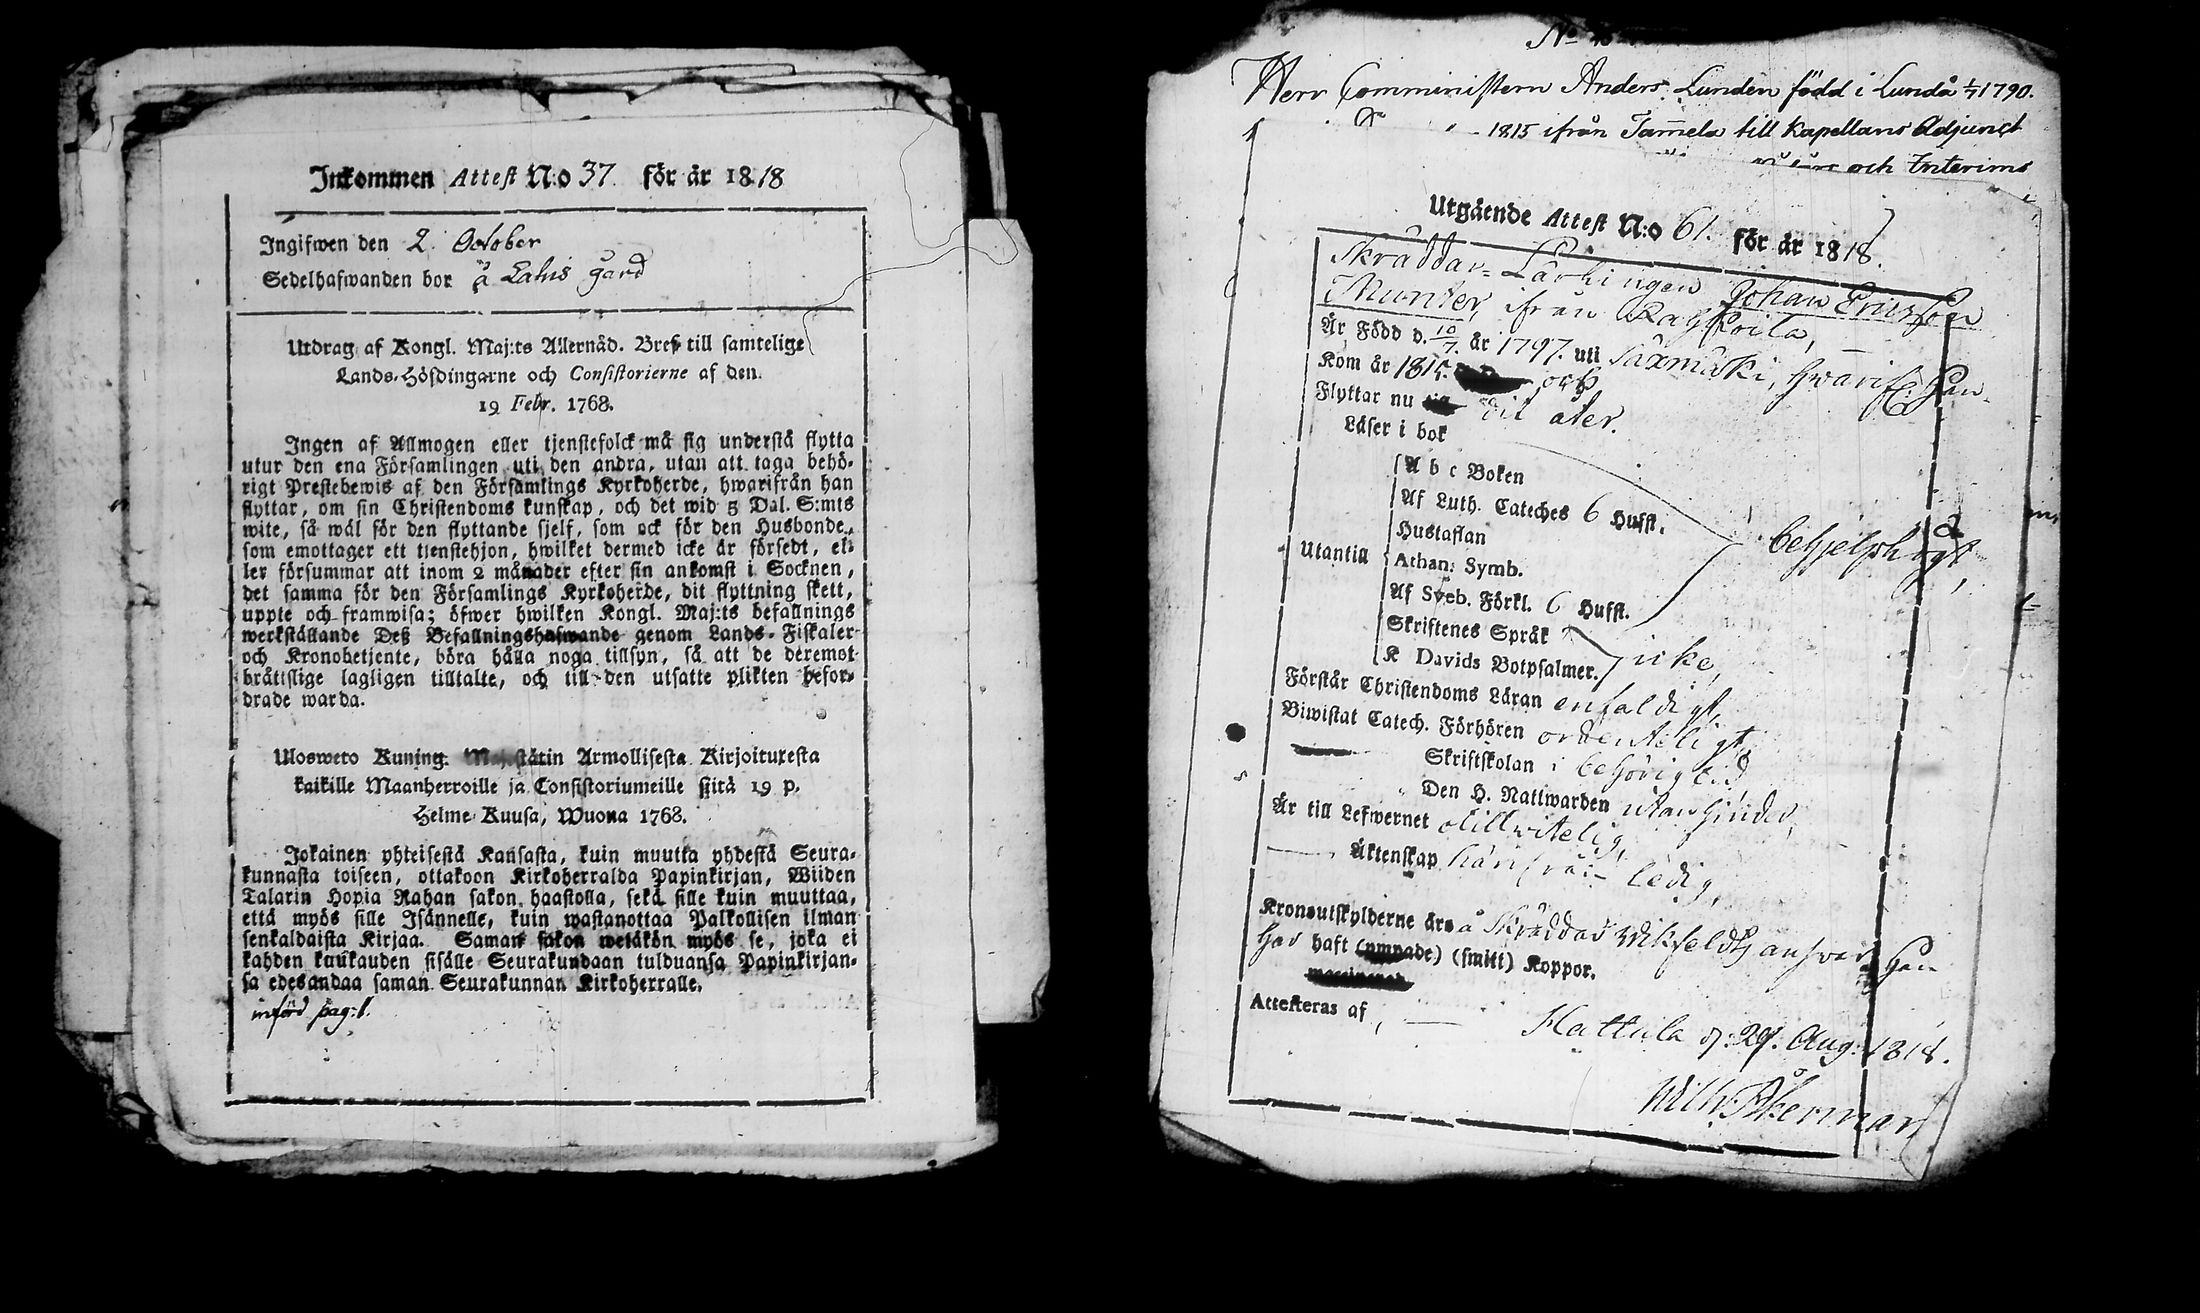 Inkommen Attest N:o 37. för år 1818
Ingifwen den 2. October
Sedelhafwanden bor å Lahis gård
Utdrag af Kongl. Maj:ts Allernåd. Bref till samtelige
Lands-Höfdingarne och Consistorierne af den
19 Febr. 1768.
Ingen af Allmogen eller tjenstefolck må sig understå flytta
utur den ena Församlingen uti den andra, utan att taga behö-
rigt Prestebewis af den Församlings Kyrkoherde, hwarifrån han
flyttar, om sin Christendoms kunskap, och det wid 5 Dal. S:mts
wite, så wäl för den flyttande sjelf, som ock för den Husbonde,
som emottager ett tjenstehjon, hwilket dermed icke är försedt, el-
ler försummar att inom 2 månader efter sin ankomst i Socknen,
det samma för den Församlings Kyrkoherde, dit flyttning skett,
uppte och framwisa; öfwer hwilken Kongl. Maj:ts befallnings
werkställande Deß Befallningshafwande genom Lands-Fiskaler
och Kronobetjente, böra hålla noga tillsyn, så att de deremot
bråtislige lagligen tilltalte, och till den utsatte plikten befor-
drade warda.
Ulosweto Kuning. Majestätin Armollisesta Kirjoituxesta
kaikille Maanherroille ja Consistoriumeille siitä 19 p.
Helme-Kuusa, Wuona 1768.
Jokainen yhteisestä Kansasta, kuin muutta yhdestä Seura-
kunnasta toiseen, ottakoon Kirkoherralda Papinkirjan, Wiiden
Talarin Hopia Rahan sakon haastolla, sekä sille kuin muuttaa,
että myös sille Isännelle, kuin wastanottaa Palkollisen ilman
senkaldaista Kirjaa. Saman sakon wetäkön myös se, joka ei
kahden kuukauden sisälle Seurakundaan tulduansa Papinkirjan-
sa edesandaa saman Seurakunnan Kirkoherralle.
införd pag: 1.
Herr Comministern Anders Lundén född i Lundå 1/7 1790.
1815 ifrån Tammela till Kapellans Adjunct
och Interims
Utgående Attest N:o 61. för år 1818.
Skräddar-Lärlingen Johan Ericsson
Munter, ifrån Rahkoila,
Är Född d. 10/7. år 1797. uti Säxmäki, hwarifr. Han
Kom år 1815. och
Flyttar nu dit åter.
Läser i bok
A b c Boken
Af Luth. Cateches 6 Hufst.
Hustaflan
Utantill
Athan: Symb.
behjelpligt,
Af Sveb. Förkl. 6 Hufst.
Skriftenes Språk
K Davids Botpsalmer. icke,
Förstår Christendoms Läran enfaldigt,
Biwistat Catech. Förhören ordenteligt,
Skriftskolan i behörig tid,
Den H. Nattwarden utan hinder,
Är till Lefwernet otillwitelig,
Äktenskap härifrån ledig,
Kronoutskylderne äro å Skräddar Wikfeldts answar. Han
har haft (smitt) Koppor.
Attesteras af
Hattula d. 29. Aug: 1818.
Wilh: Åkerman